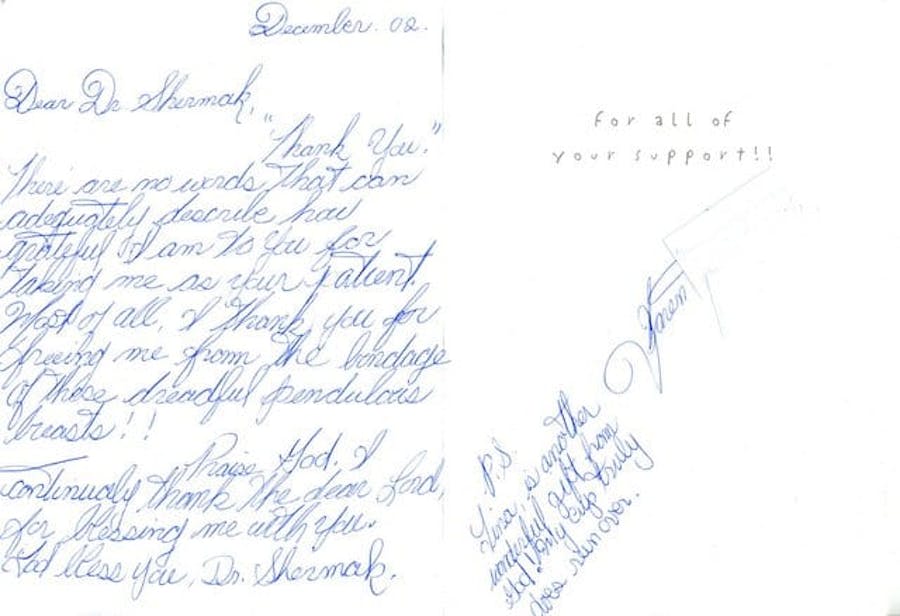 December. 02.
Dear Dr. Shermak,
"Thank You."
There are no words that can
adequately describe how
grateful I am to you for
taking me as your patient.
Most of all, I thank you for
freeing me from the bondage
of these dreadful pendulous
breasts!!
Praise God. I
continually thank the dear Lord,
for blessing me with you.
God bless you, Dr. Shermak.
for all of
your support!!
Karen
P.S.
Tina is another
wonderful gift from
God! My cup truly
does run over.